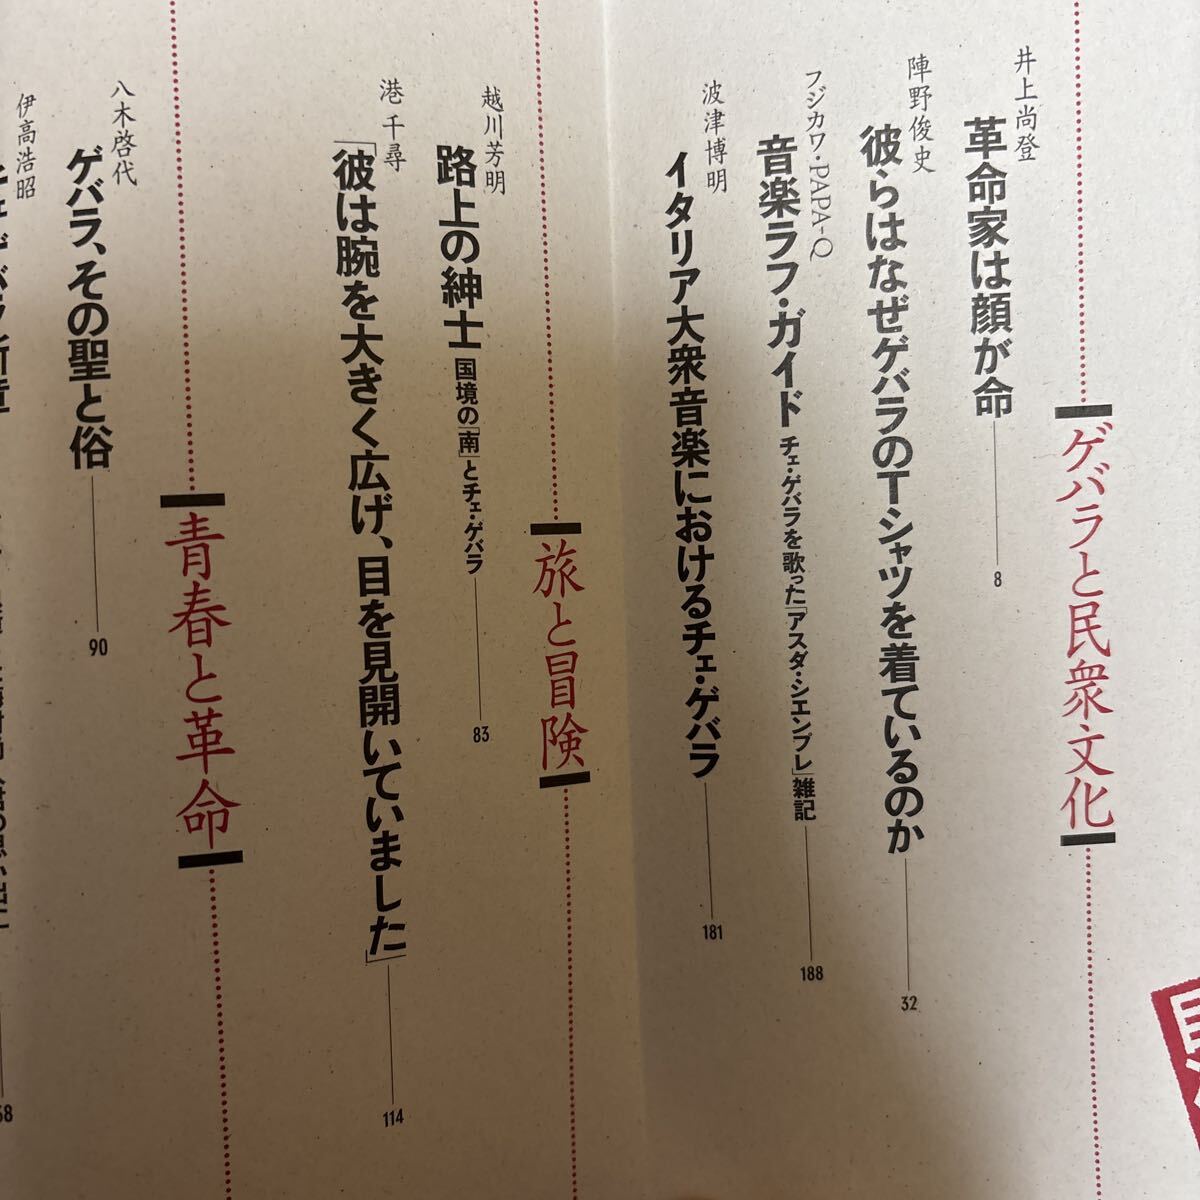 ゲバラと民衆文化
井上尚登
革命家は顔が命
8
陣野俊史
彼らはなぜゲバラのTシャツを着ているのか
32
フジカワ・PAPA-Q
音楽ラフ・ガイド チェ・ゲバラを歌った「アスタ・シエンプレ」雑記
188
波津博明
イタリア大衆音楽におけるチェ・ゲバラ
181
旅と冒険
越川芳明
路上の紳士 国境の「南」とチェ・ゲバラ
83
港 千尋
「彼は腕を大きく広げ、目を見開いていました」
114
青春と革命
八木啓代
ゲバラ、その聖と俗
90
伊高浩昭